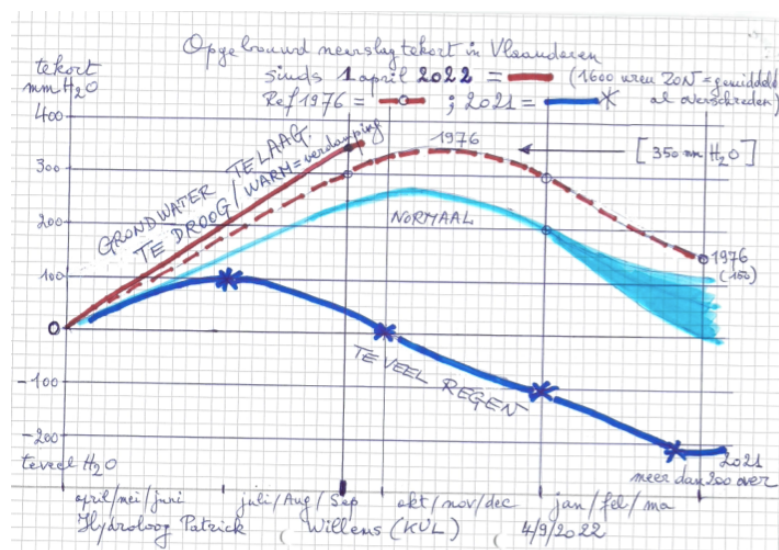 Opgebouwd neerslagtekort in Vlaanderen
sinds 1 april 2022 = (1600 uren ZON = gemiddeld
Ref 1976 = ; 2021 = al overschreden)
tekort
mm H2O
400
300
200
100
0
-100
-200
teveel H2O
GRONDWATER TE LAAG.
TE DROOG / WARM = verdamping
1976
[350 mm H2O]
NORMAAL
1976
(150)
TE VEEL REGEN
2021
meer dan 200 over
april/mei/juni juli/Aug/Sep okt/nov/dec jan/feb/ma
Hydroloog Patrick Willems (KUL) 4/9/2022